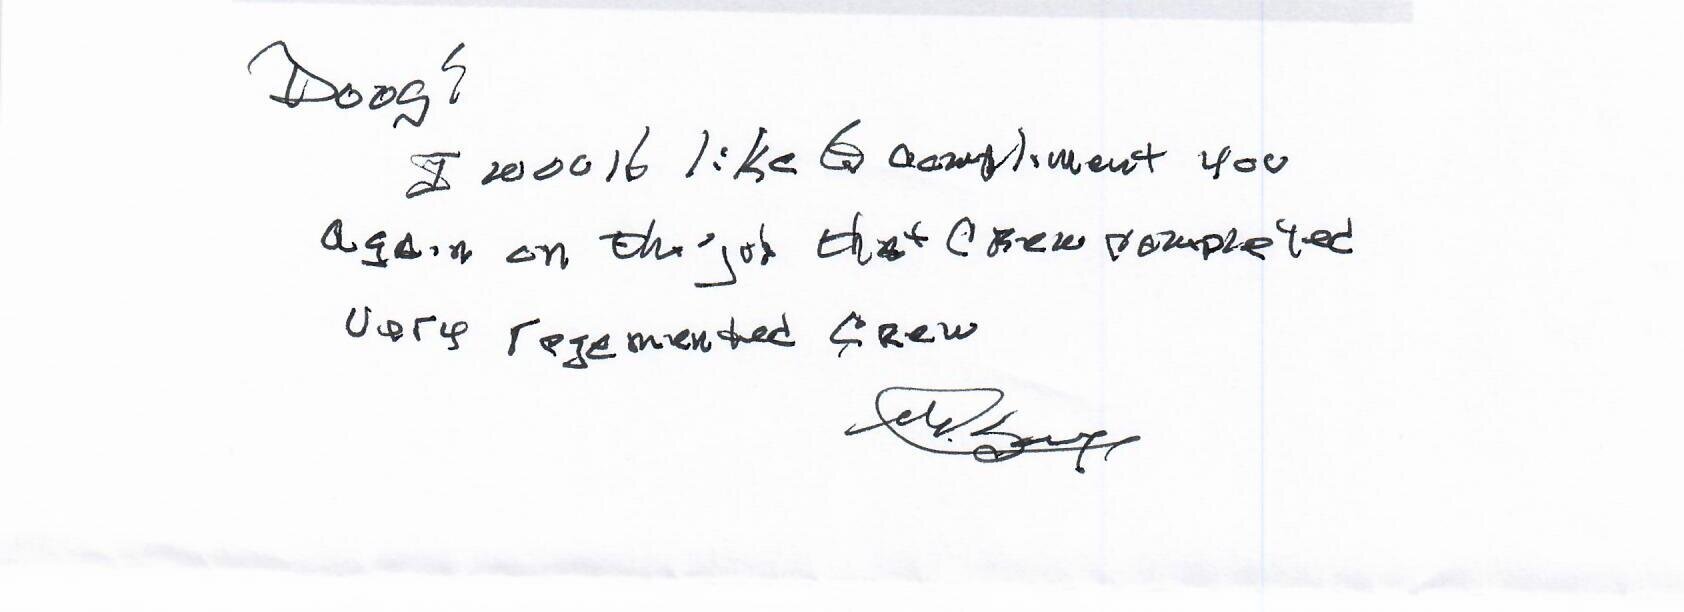 Doug:
I would like to compliment you
again on the job that Crew completed
Very regemented Crew